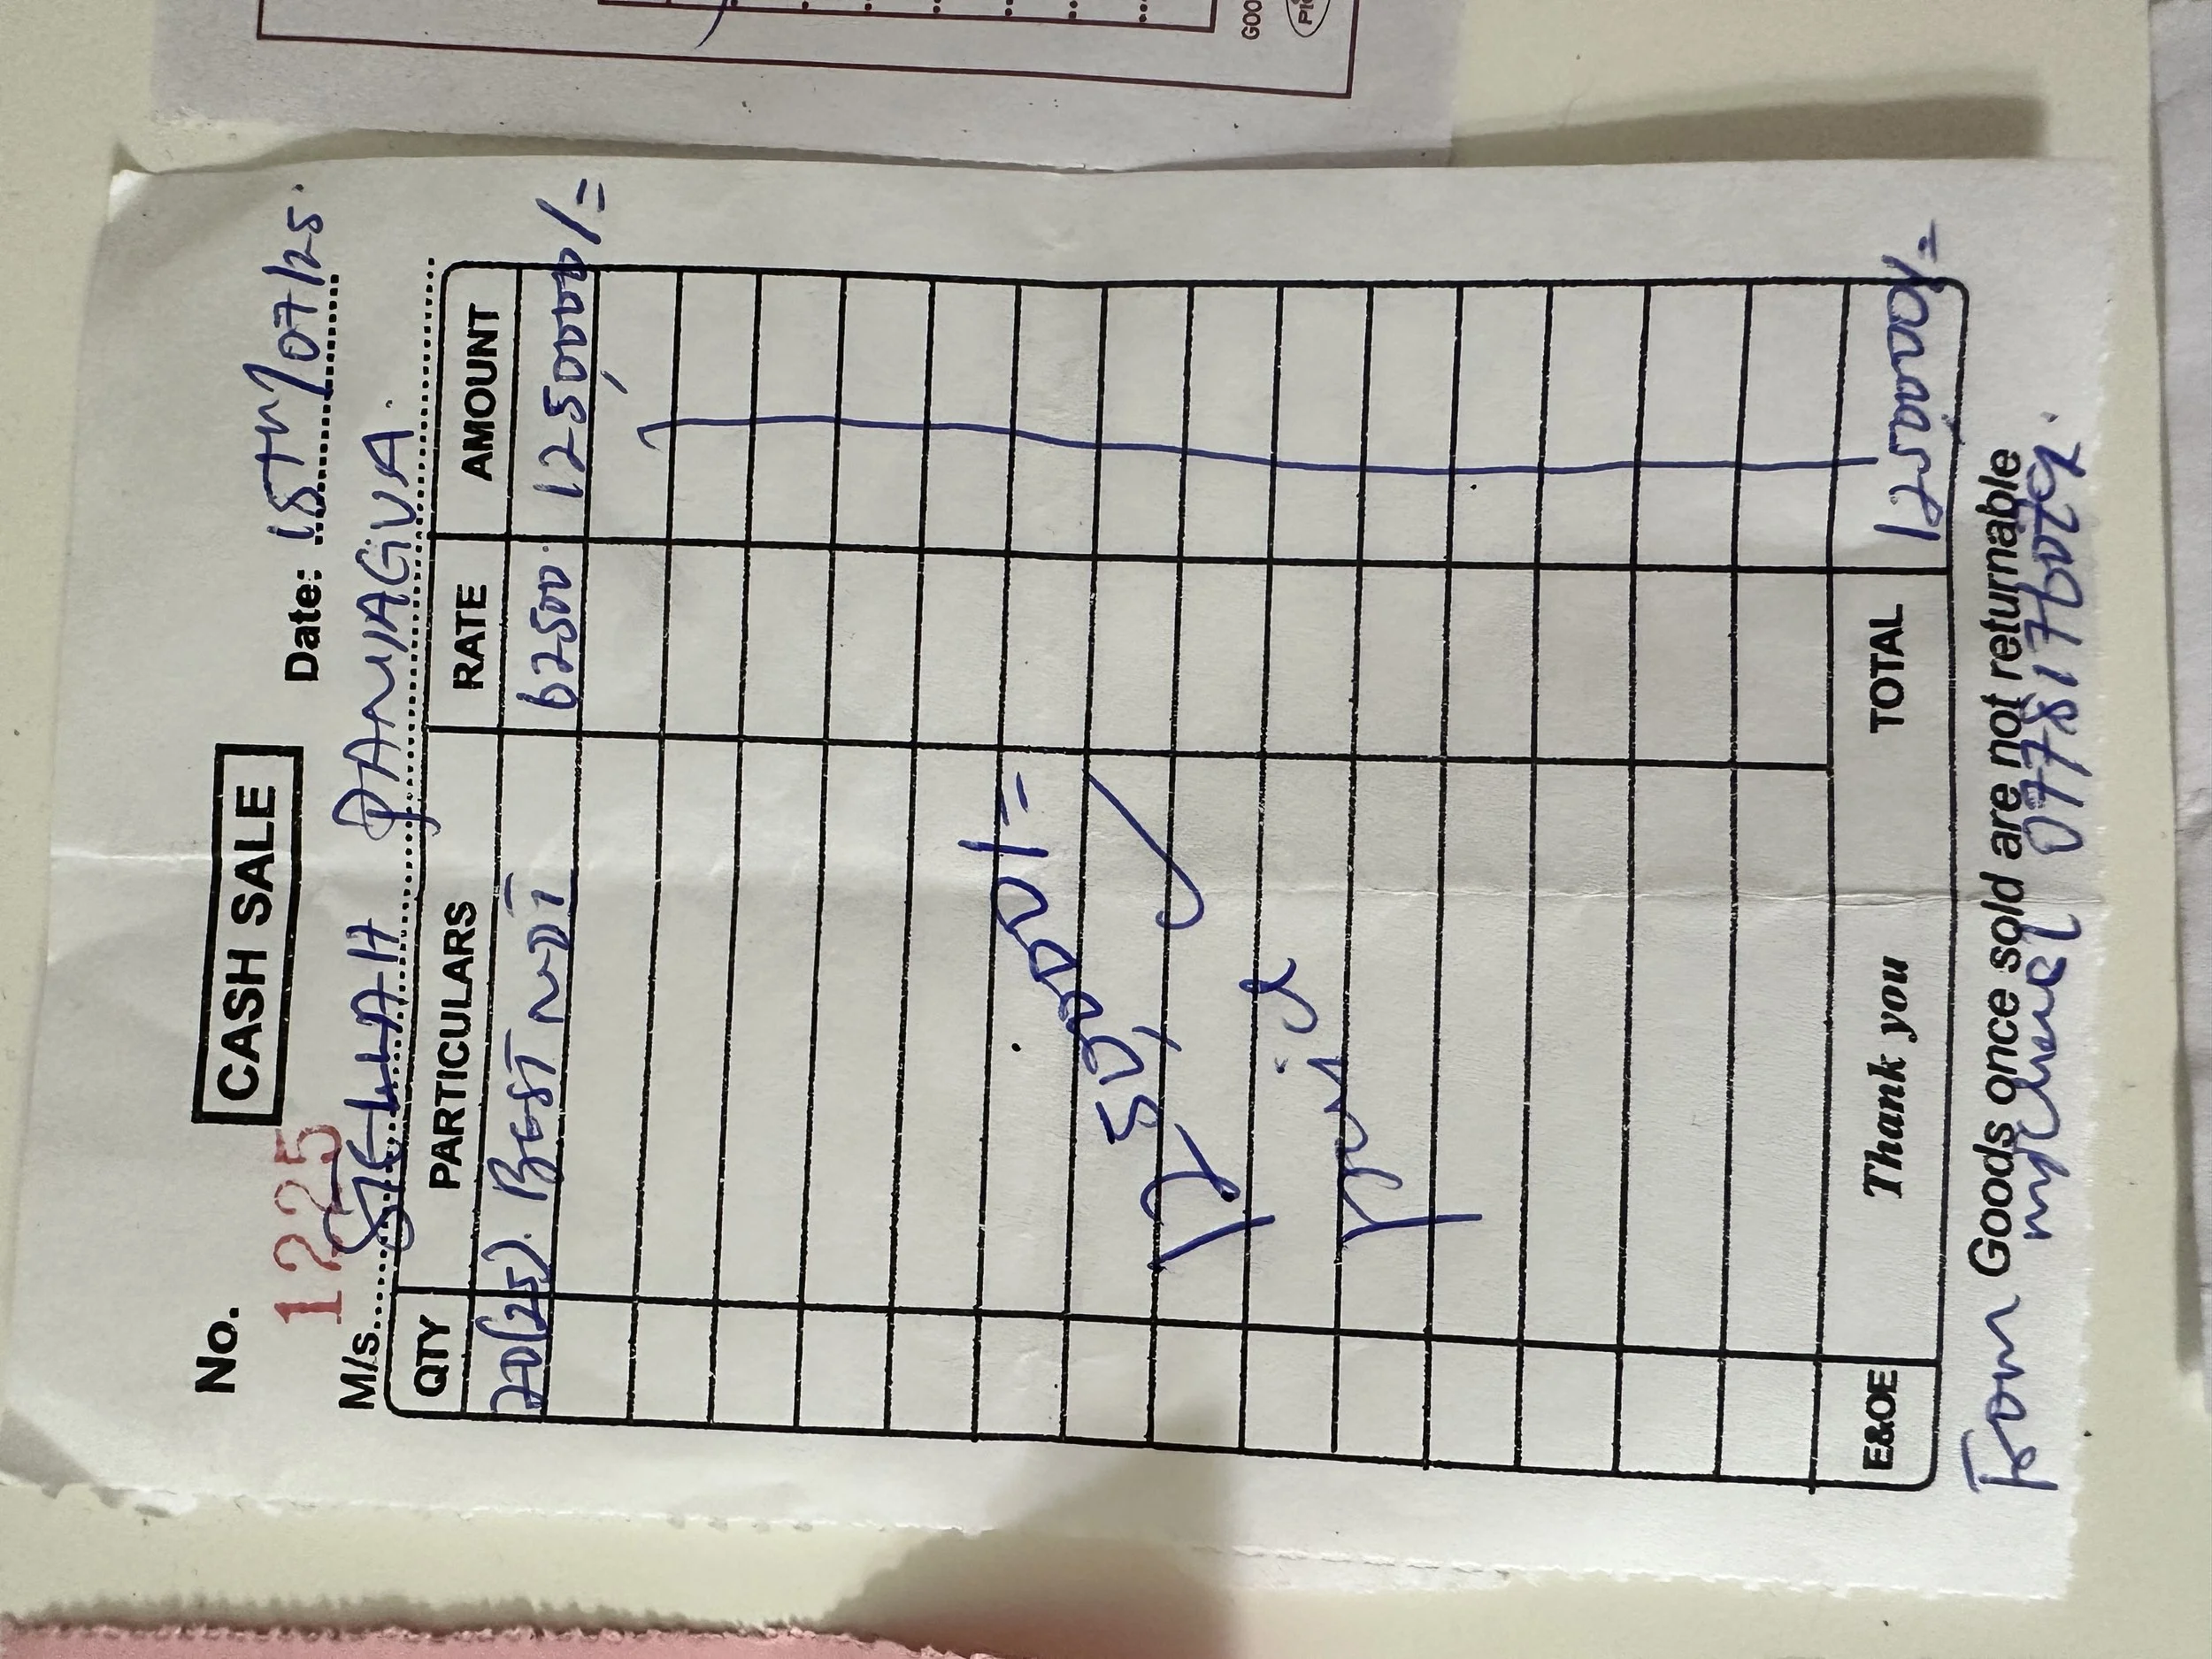 No. CASH SALE
1225 Date: 15TH/07/25.
M/s. STELLAH PANIAGUA.
QTY PARTICULARS RATE AMOUNT
20(25). BEST NDI 62500. 1250,000/=
1250,000/=
paid
E&OE Thank you TOTAL 1250,000/=
Goods once sold are not returnable
From 0778176029.
GOO